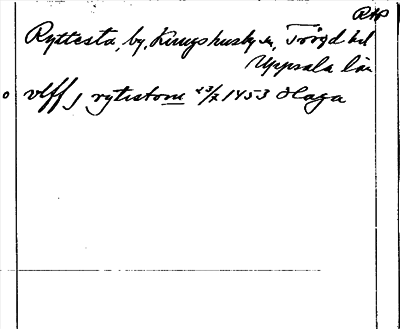 RAP
Ryttesta, by, Kungshusby sn, Trögd hd
Uppsala län
o vlff j rytistom 23/7 1453 Haga